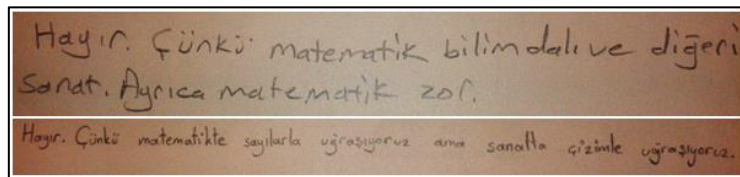 Hayır. Çünkü matematik bilim dalı ve diğeri
Sanat. Ayrıca matematik zor.
Hayır. Çünkü matematikte sayılarla uğraşıyoruz ama sanatta çizimle uğraşıyoruz.